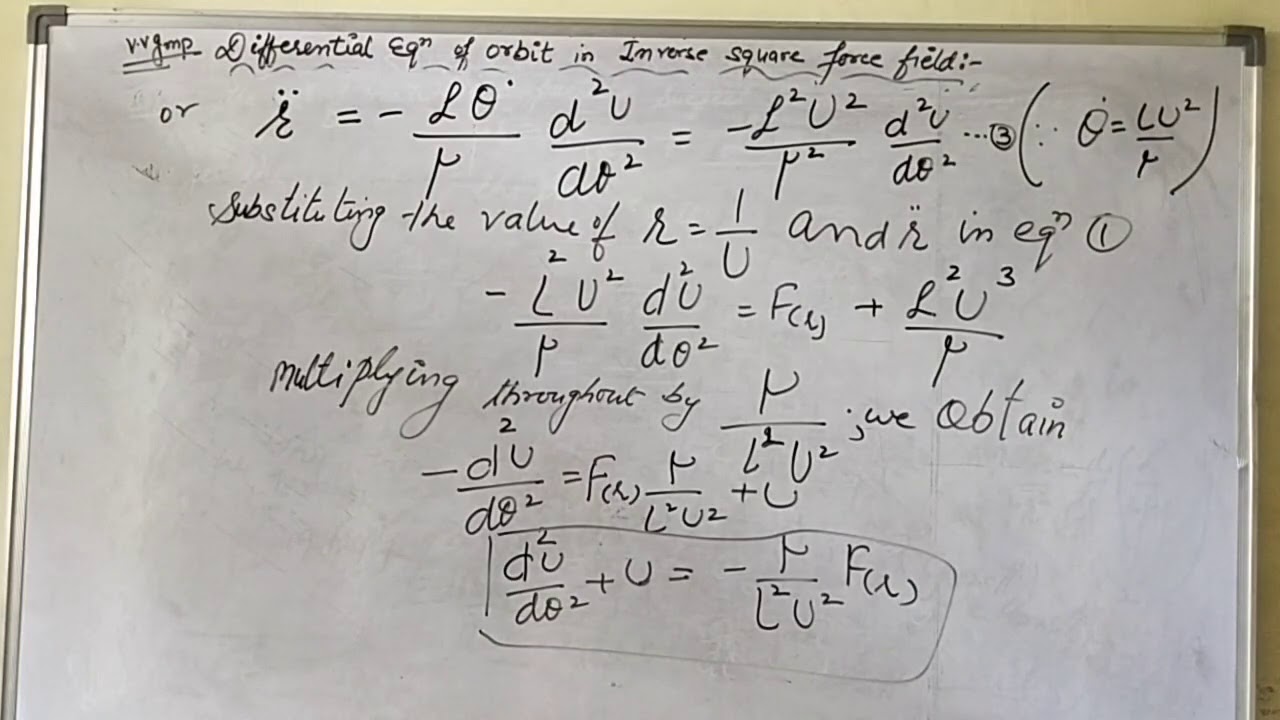 v.v Imp Differential Eqⁿ of orbit in Inverse square force field:-
or r̈ = - Lθ̇/μ d²U/dθ² = -L²U²/μ² d²U/dθ² ...③ (∵ θ̇ = LU²/μ)
Substititing the value of r = 1/U and r̈ in eqⁿ ①
- L²U²/μ d²U/dθ² = F(r) + L²U³/μ
Multiplying throughout by μ/L²U² ; we Obtain
- d²U/dθ² = F(r) μ/L²U² + U
d²U/dθ² + U = - μ/L²U² F(r)